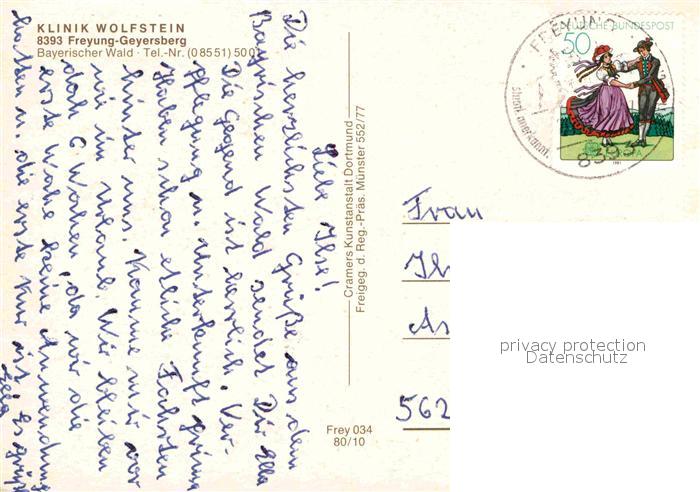 KLINIK WOLFSTEIN
8393 Freyung-Geyersberg
Bayerischer Wald · Tel.-Nr. (0 85 51) 50 01
Liebe Ilse!
Die herzlichsten Grüße aus dem
Bayrischen Wald sendet Dir Ella
Die Gegend ist herrlich. Ver-
pflegung u. Unterkunft prima
Haben schon etliche Fahrten
hinter uns. Komme mir vor
wie im Urlaub. Wir bleiben
doch 6 Wochen, da wir die
erste Woche keine Anwendung
hatten u. die erste Kur ist. Es grüßt
Ella
Cramers Kunstanstalt Dortmund
Freigeg. d. Reg.-Präs. Münster 552/77
Frey 034
80/10
DEUTSCHE BUNDESPOST
50
1981
FREYUNG
8393
Frau
562
privacy protection
Datenschutz